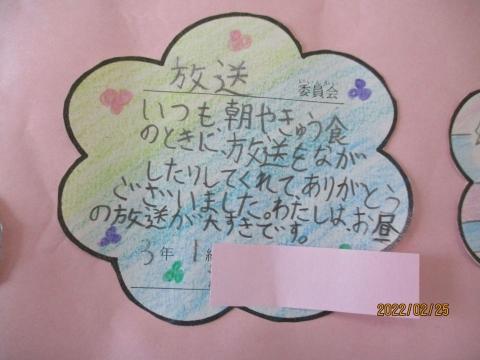 放送
委員会
いいんかい
いつも朝やきゅう食
のときに、放送をなが
したりしてくれてありがとう
ございました。わたしは、お昼
の放送が大すきです。
3年 1組
2022/02/25